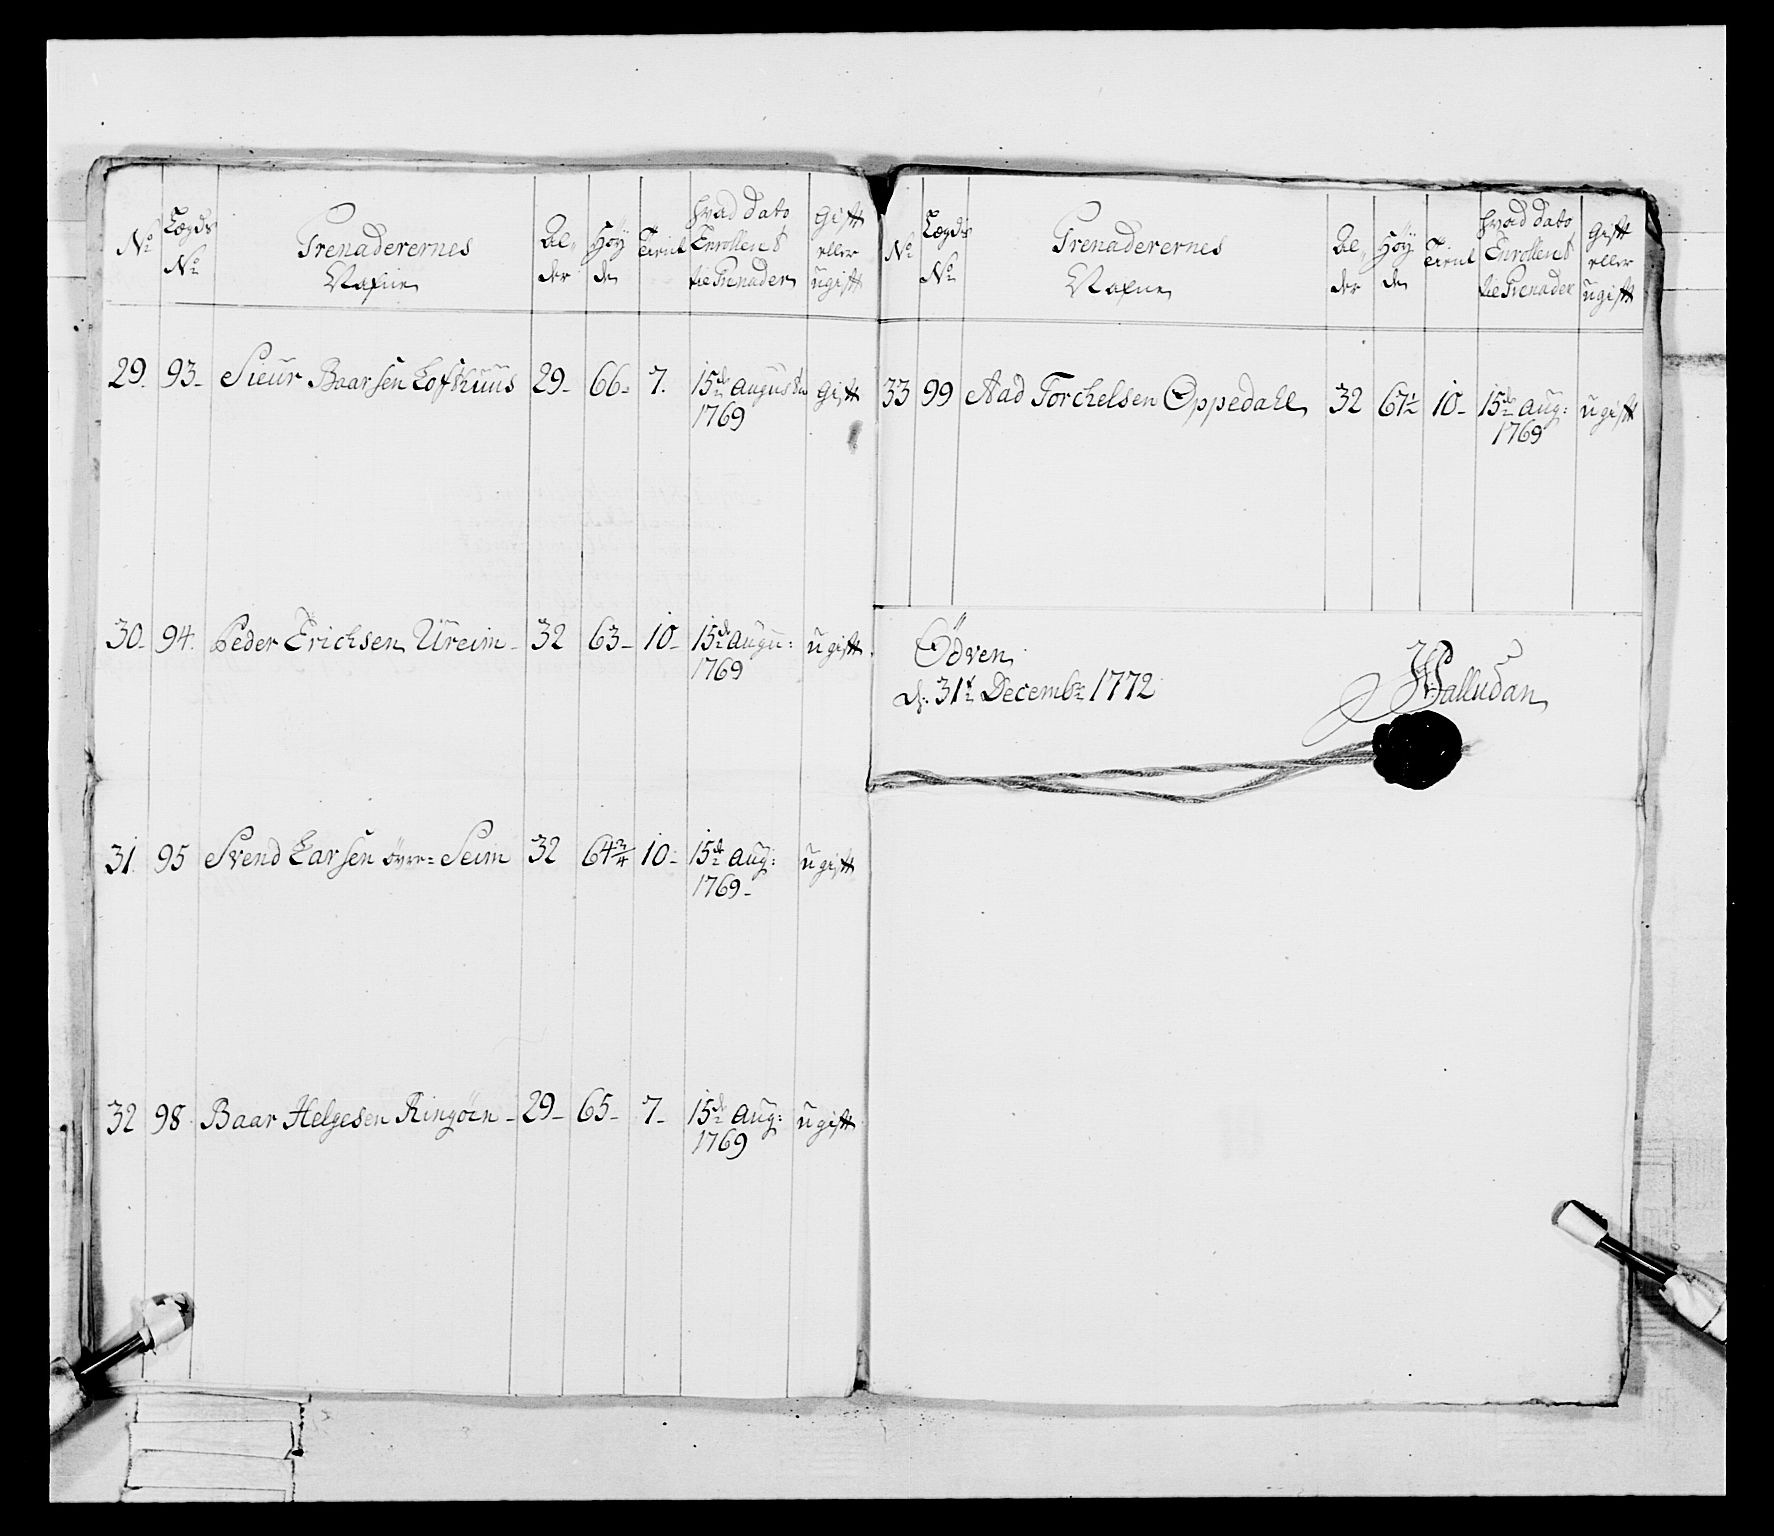 No
Lægds No
Grenaderernes Nafne
Al, der
Høy de
Tient
hvad dato Enrollent til Grenader
Gift eller ugift
29. 93- Siuur Baarsen Lofthuus 29- 66- 7. 15de Augusti Gift
1769
30. 94. Peder Erichsen Ureim- 32 63- 10- 15de Augu: ugift.
1769
31. 95 Svend Larsen øvre= Seim 32 64 3/4 10- 15de Aug: ugift
1769-
32 98 Baar Helgesen Ringøen- 29- 65- 7- 15de Aug: ugift
1769
No
Lægds No
Grenaderernes Nafne
Al, der
Høy de
Tient
hvad dato Enrollent til Grenader
Gift eller ugift
33 99 Aad Torchelsen Oppedahl 32 67 1/2 10- 15de Aug: ugift
1769
Ødven
d: 31te Decembr 1772
Walludan